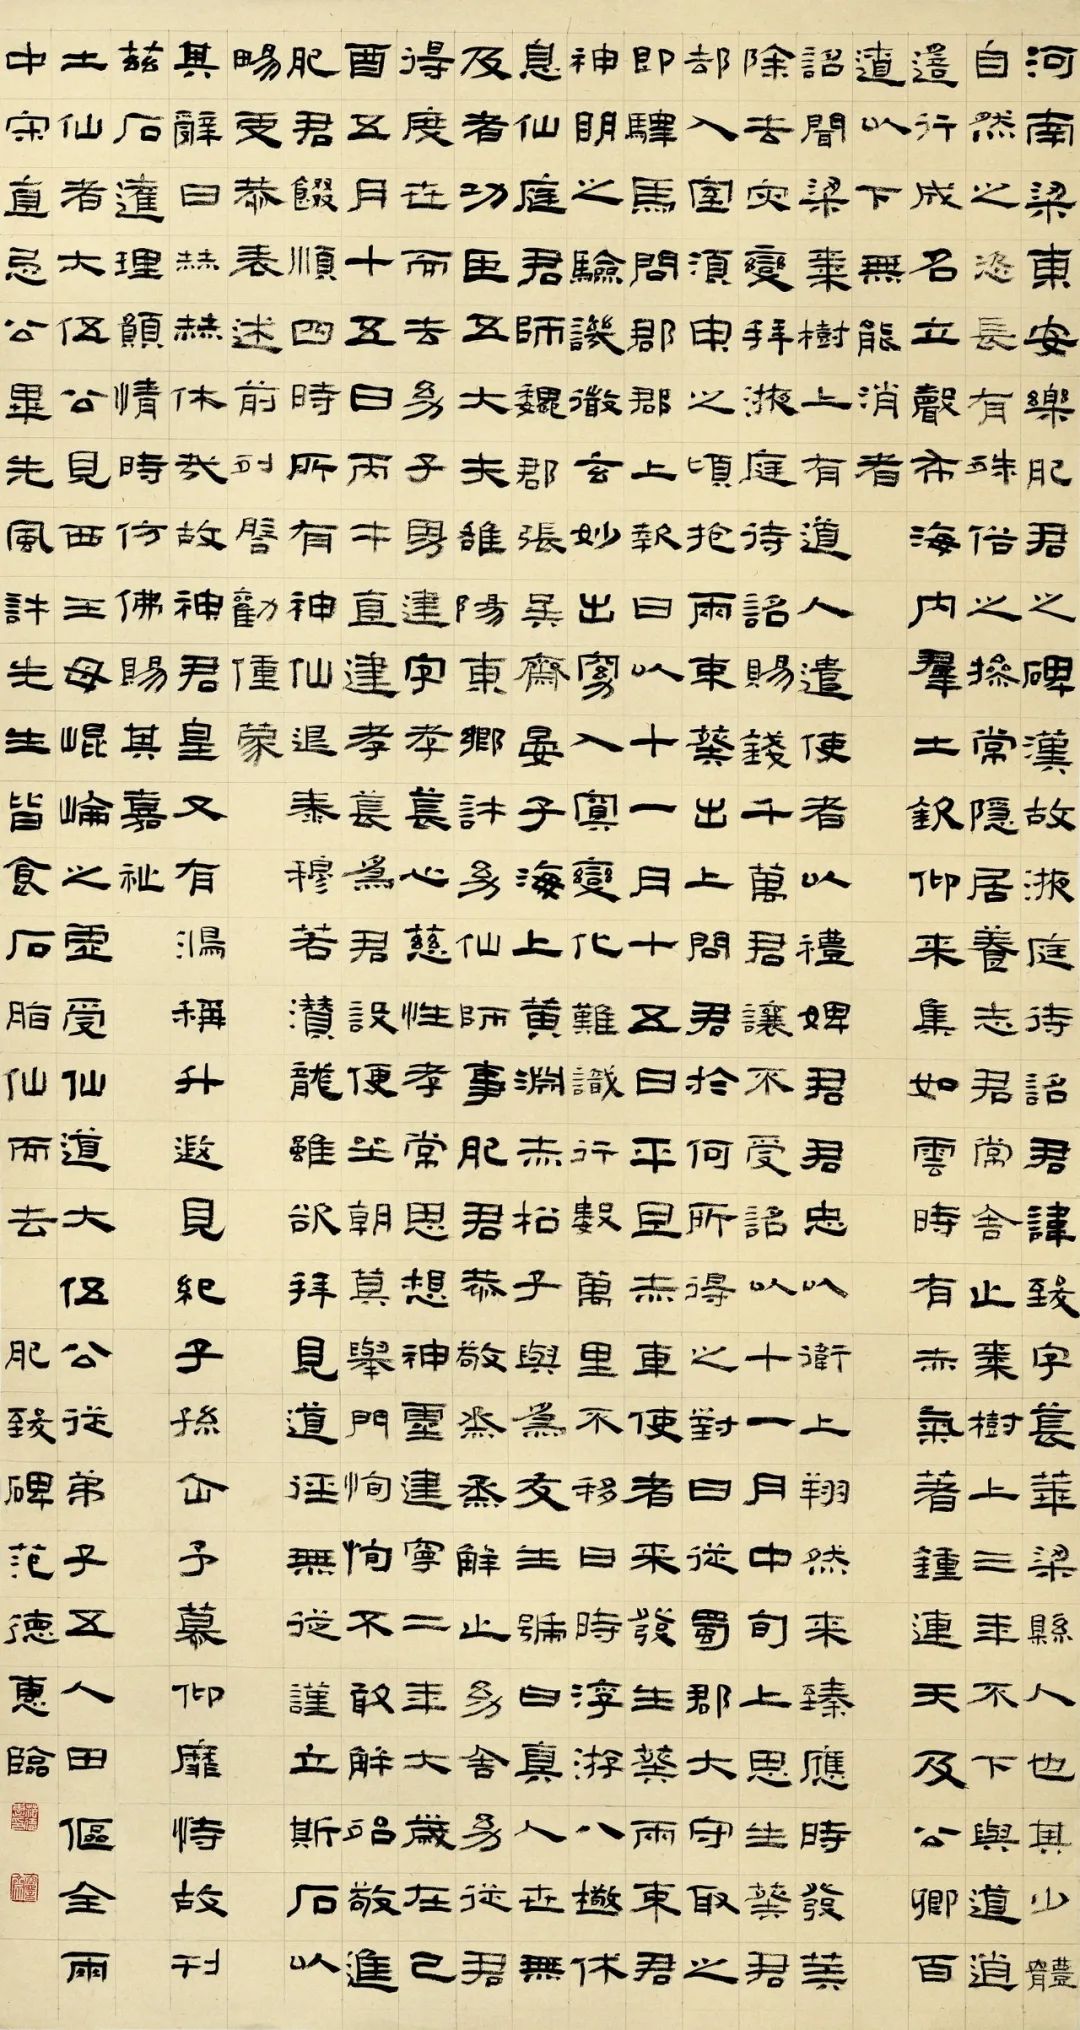 河南梁東安樂肥君之碑漢故掖庭待詔君諱致字萇華梁縣人也其少體
自然之恣長有殊俗之操常隱居養志君常舍止棗樹上三年不下與道逍
遙行成名立聲布海內群士欽仰來集如雲時有赤氣著鍾連天及公卿百
遼以下無能消者
詔聞梁棗樹上有道人遣使者以禮娉君君忠以衛上翔然來臻應時發筭
除去灾變拜掖庭待詔賜錢千萬君讓不受詔以十一月中旬上思生葵君
却入室須臾之頃抱兩束葵出上問君於何所得之對曰從蜀郡大守取之
即驛馬問郡郡上報曰以十一月十五日平旦赤車使者來發生葵兩束君
神明之驗譏徹玄妙出窈入冥變化難識行數萬里不移日時浮游八極休
息仙庭君師魏郡張吳齋晏子海上黃淵赤松子與為友生號曰真人世無
及者功臣五大夫雒陽東鄉許幼仙師事肥君恭敬烝烝解止幼舍幼從君
得度世而去幼子男建字孝萇心慈性孝常思想神靈建寧二年大歲在己
酉五月十五日丙午直建孝萇為君設便坐朝莫舉門恂恂不敢解殆敬進
肥君餟順四時所有神仙退泰穆若潛龍雖欲拜見道徑無從謹立斯石以
暢叟恭表述前列啓勸僮蒙
其辭曰赫赫休哉故神君皇又有鴻稱升遐見紀子孫企予慕仰靡恃故刊
茲石達理顯情時仿佛賜其嘉祉
土仙者大伍公見西王母崐崘之虛受仙道大伍公從弟子五人田傴全雨
中宋直忌公畢先風許先生皆食石脂仙而去 肥致碑范德惠臨